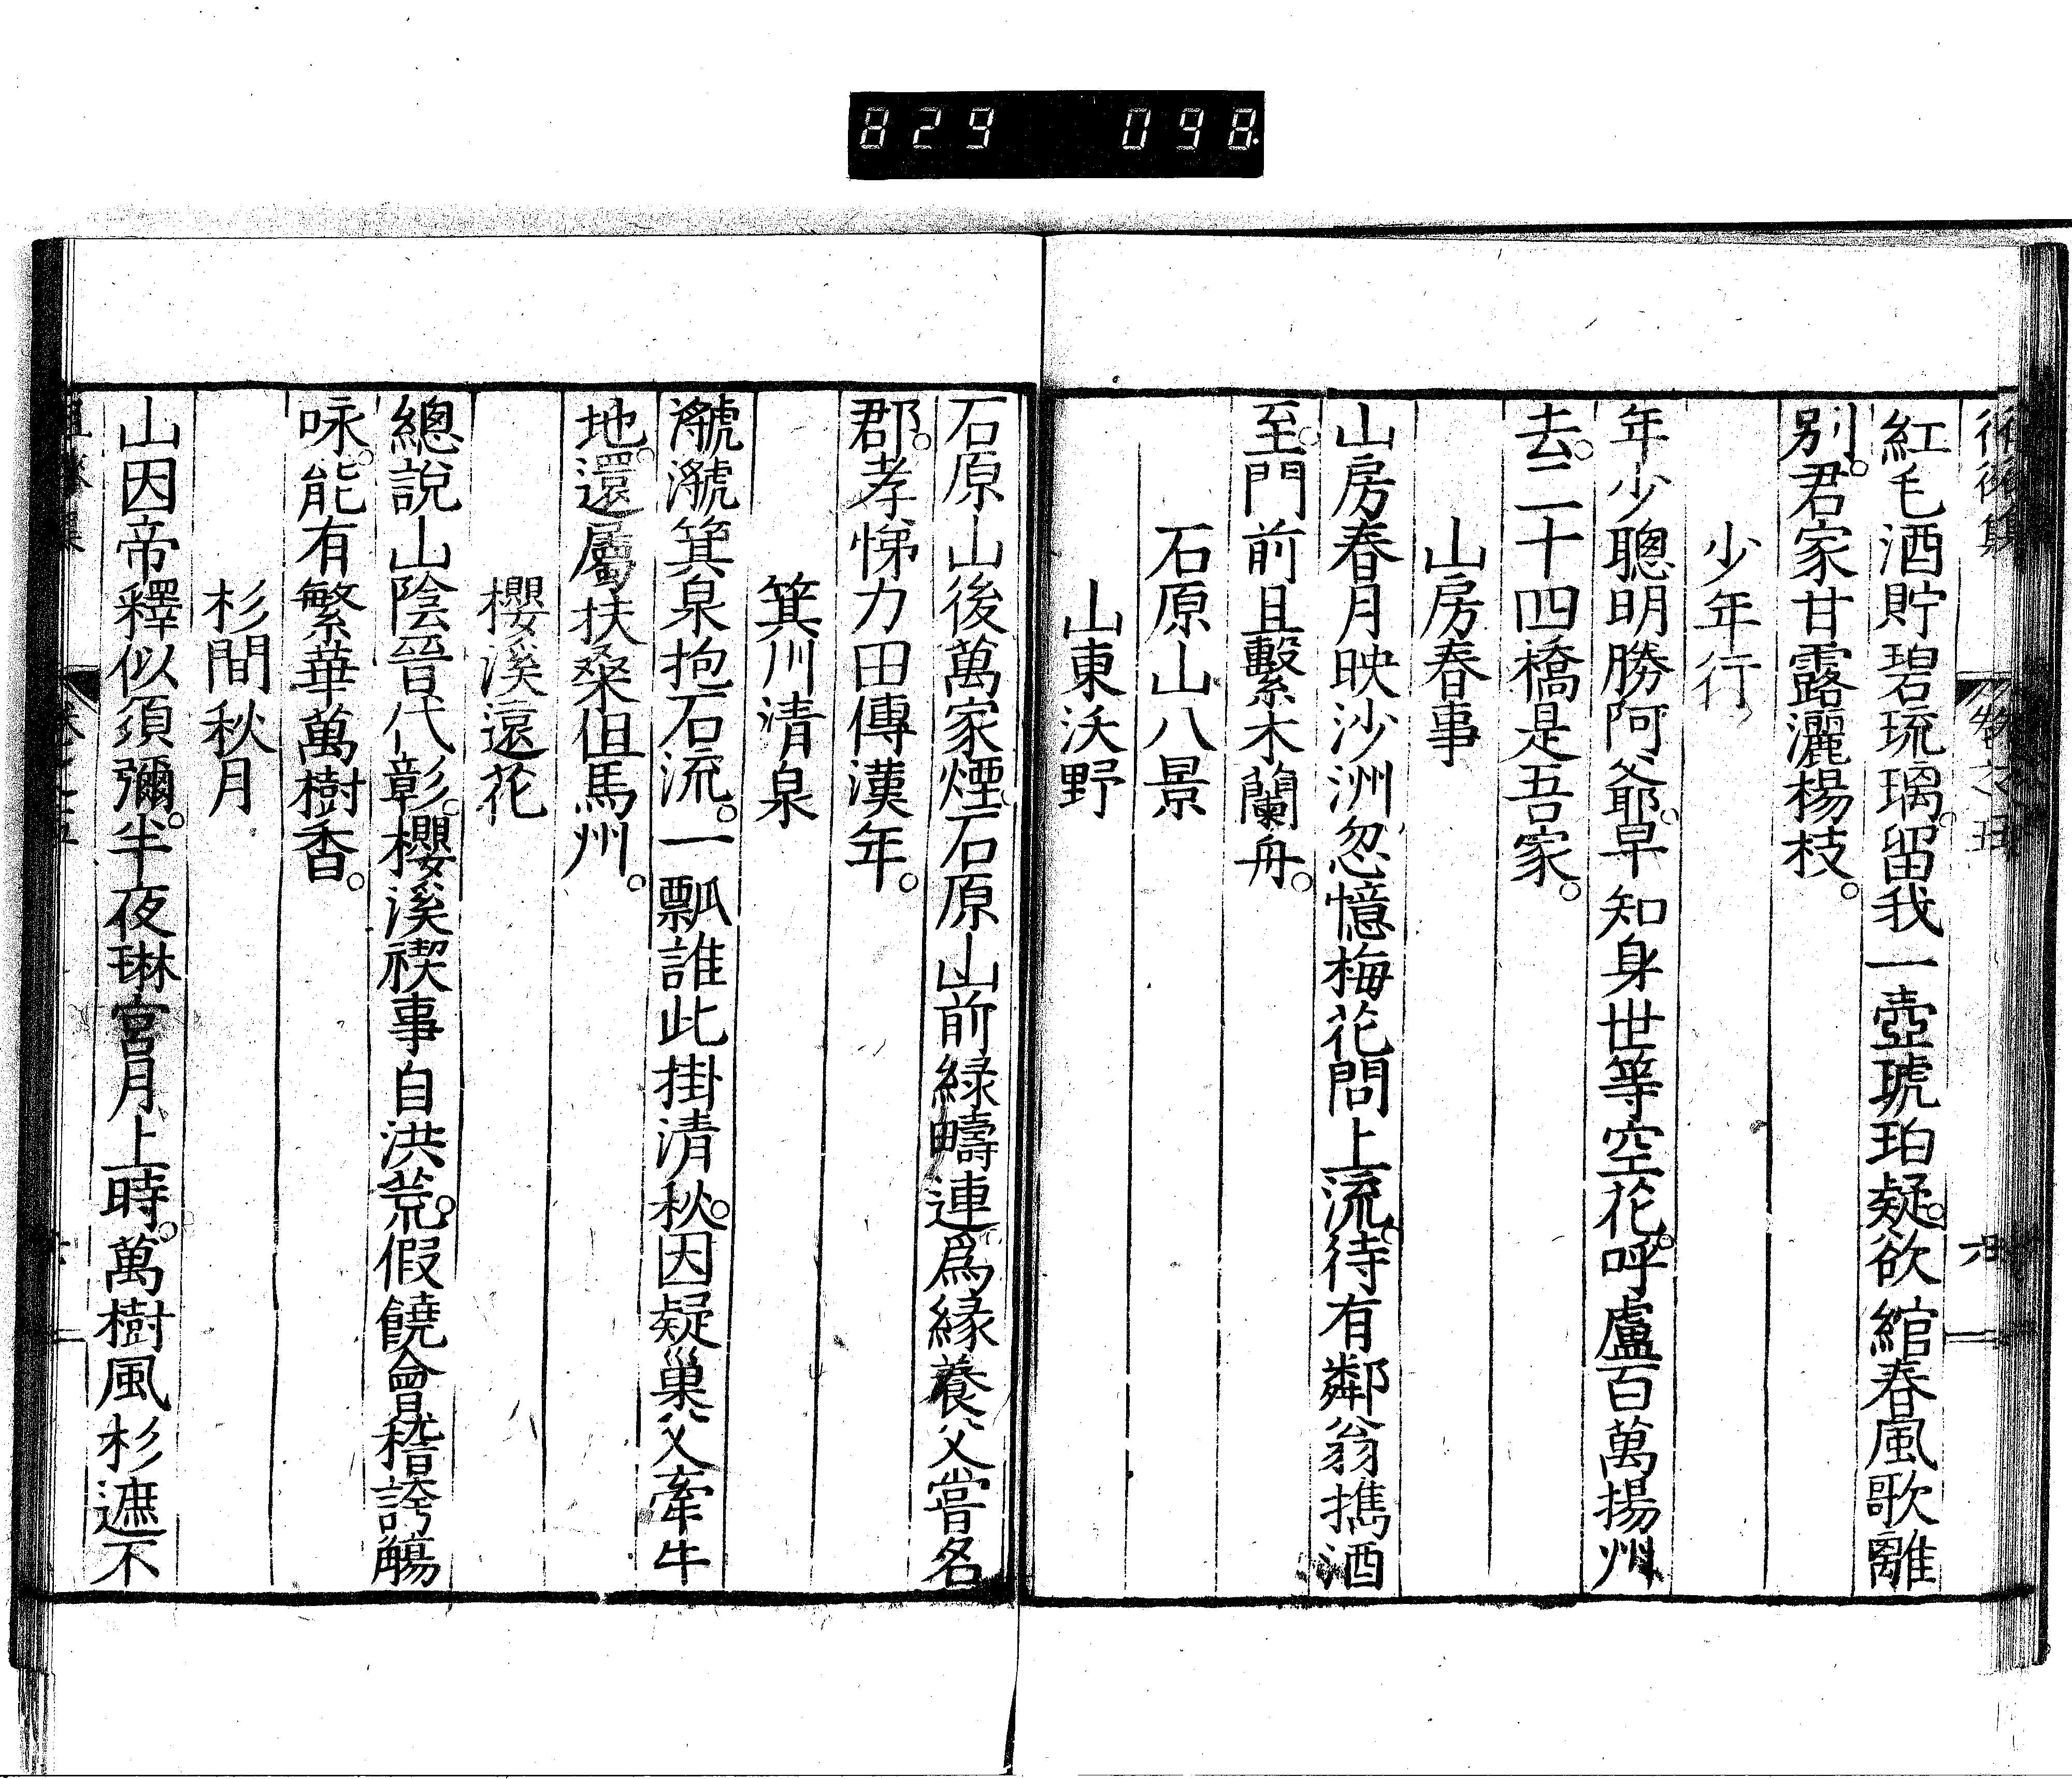 829 098
紅毛酒貯碧琉璃。留我一壺琥珀疑。欲綰春風歌離
別。君家甘露灑楊枝。
少年行
年少聰明勝阿爺。早知身世等空花。呼盧百萬揚州
去。二十四橋是吾家。
山房春事
山房春月映沙洲忽憶梅花問上流。待有鄰翁攜酒
至。門前且繫木蘭舟。
石原山八景
山東沃野
石原山後萬家煙。石原山前緑疇連。爲緣養父嘗名
郡。孝悌力田傳漢年。
箕川清泉
㶁㶁箕泉抱石流。一瓢誰此掛清秋。因疑巢父牽牛
地。還屬扶桑但馬州。
櫻溪遠花
總說山陰晉代彰。櫻溪禊事自洪荒。假饒會稽誇觴
咏。能有繁華萬樹香。
杉間秋月
山因帝釋似須彌。半夜琳宮月上時。萬樹風杉遮不